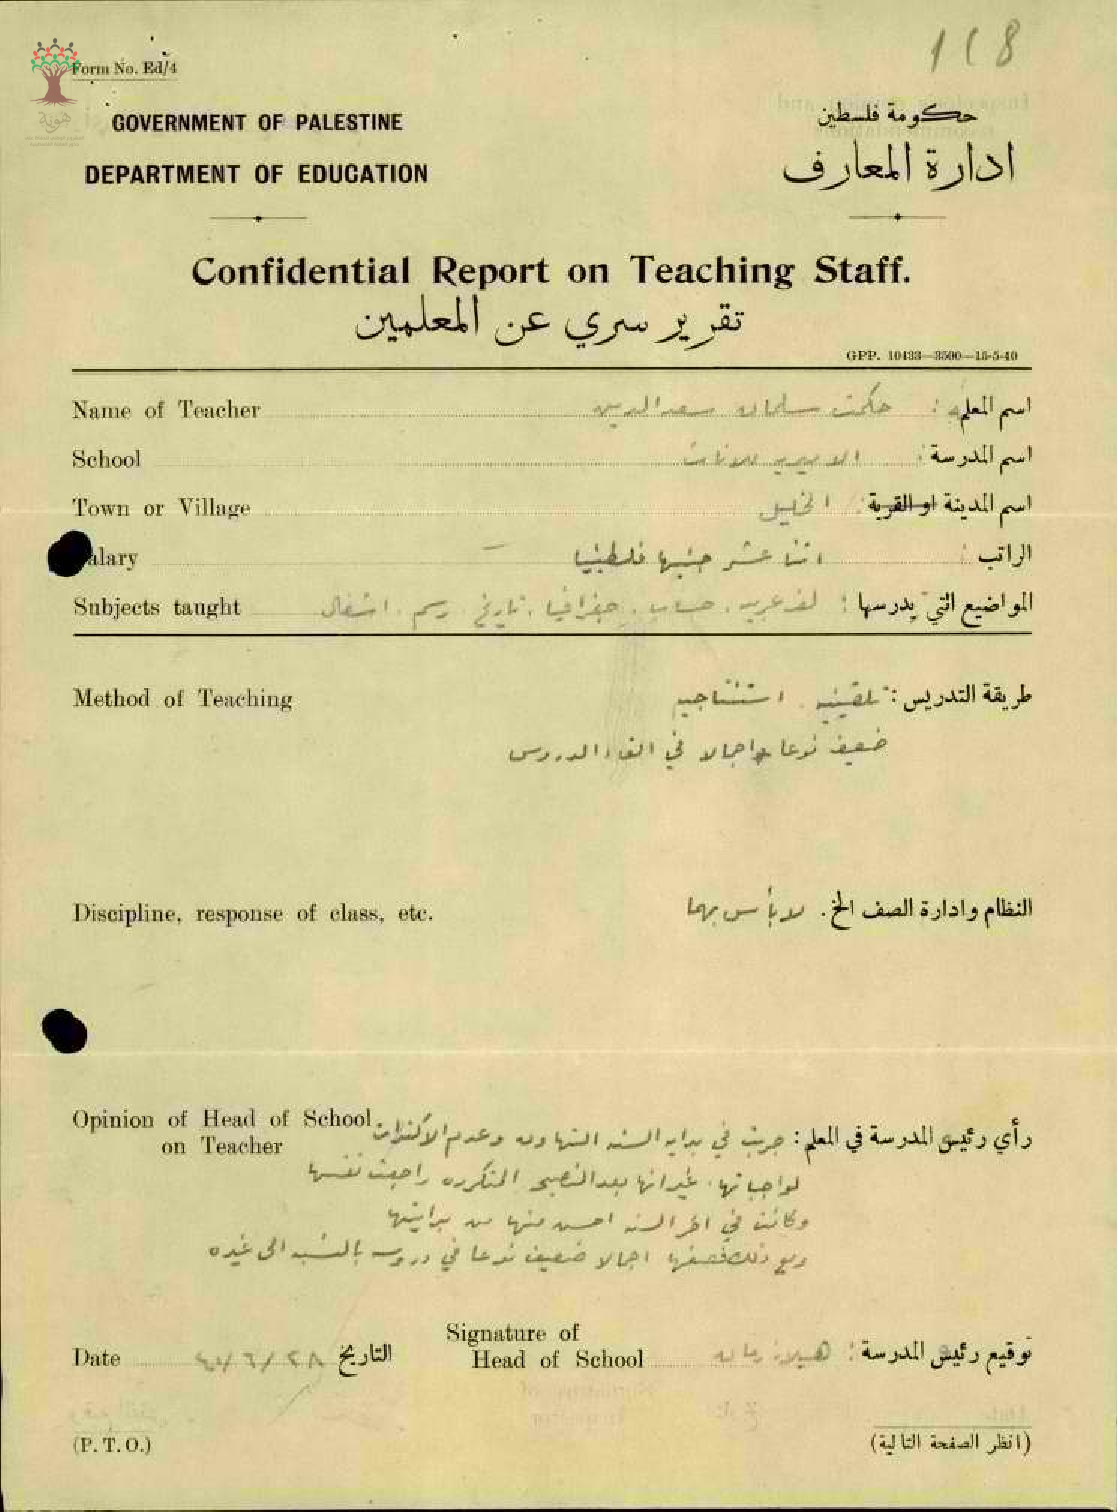 118
Form No. Ed/4
هوية
GOVERNMENT OF PALESTINE
حكومة فلسطين
DEPARTMENT OF EDUCATION
ادارة المعارف
Confidential Report on Teaching Staff.
تقرير سري عن المعلمين
GPP. 10433—3500—15-5-40
Name of Teacher حكمت سلمان سعد الدين اسم المعلم :
School الاميرية للبنات اسم المدرسة :
Town or Village الخليل اسم المدينة او القرية :
alary اثنا عشر جنيها فلسطينيا الراتب :
Subjects taught لغة عربية . حساب . جغرافيا . تاريخ . رسم . اشغال المواضيع التي يدرسها :
Method of Teaching طريقة التدريس : تلقينيه . استنتاجيه
ضعيفه نوعا واجمالا في القاء الدروس
Discipline, response of class, etc. النظام وادارة الصف الخ . لا بأس بهما
Opinion of Head of School on Teacher رأي رئيس المدرسة في المعلم : جربت في بداية السنه التهاون وعدم الاكتراث
لواجباتها . غير انها بعد النصح المتكرره راجعت نفسها
وكانت في اخر السنه احسن منها من بدايتها
ومع ذلك فصفها اجمالا ضعيف نوعا في دروسه بالنسبه الى غيره
Date ٢٨/٦/٤١ التاريخ
Signature of Head of School توقيع رئيس المدرسة :
(P. T. O.)
(انظر الصفحة التالية)